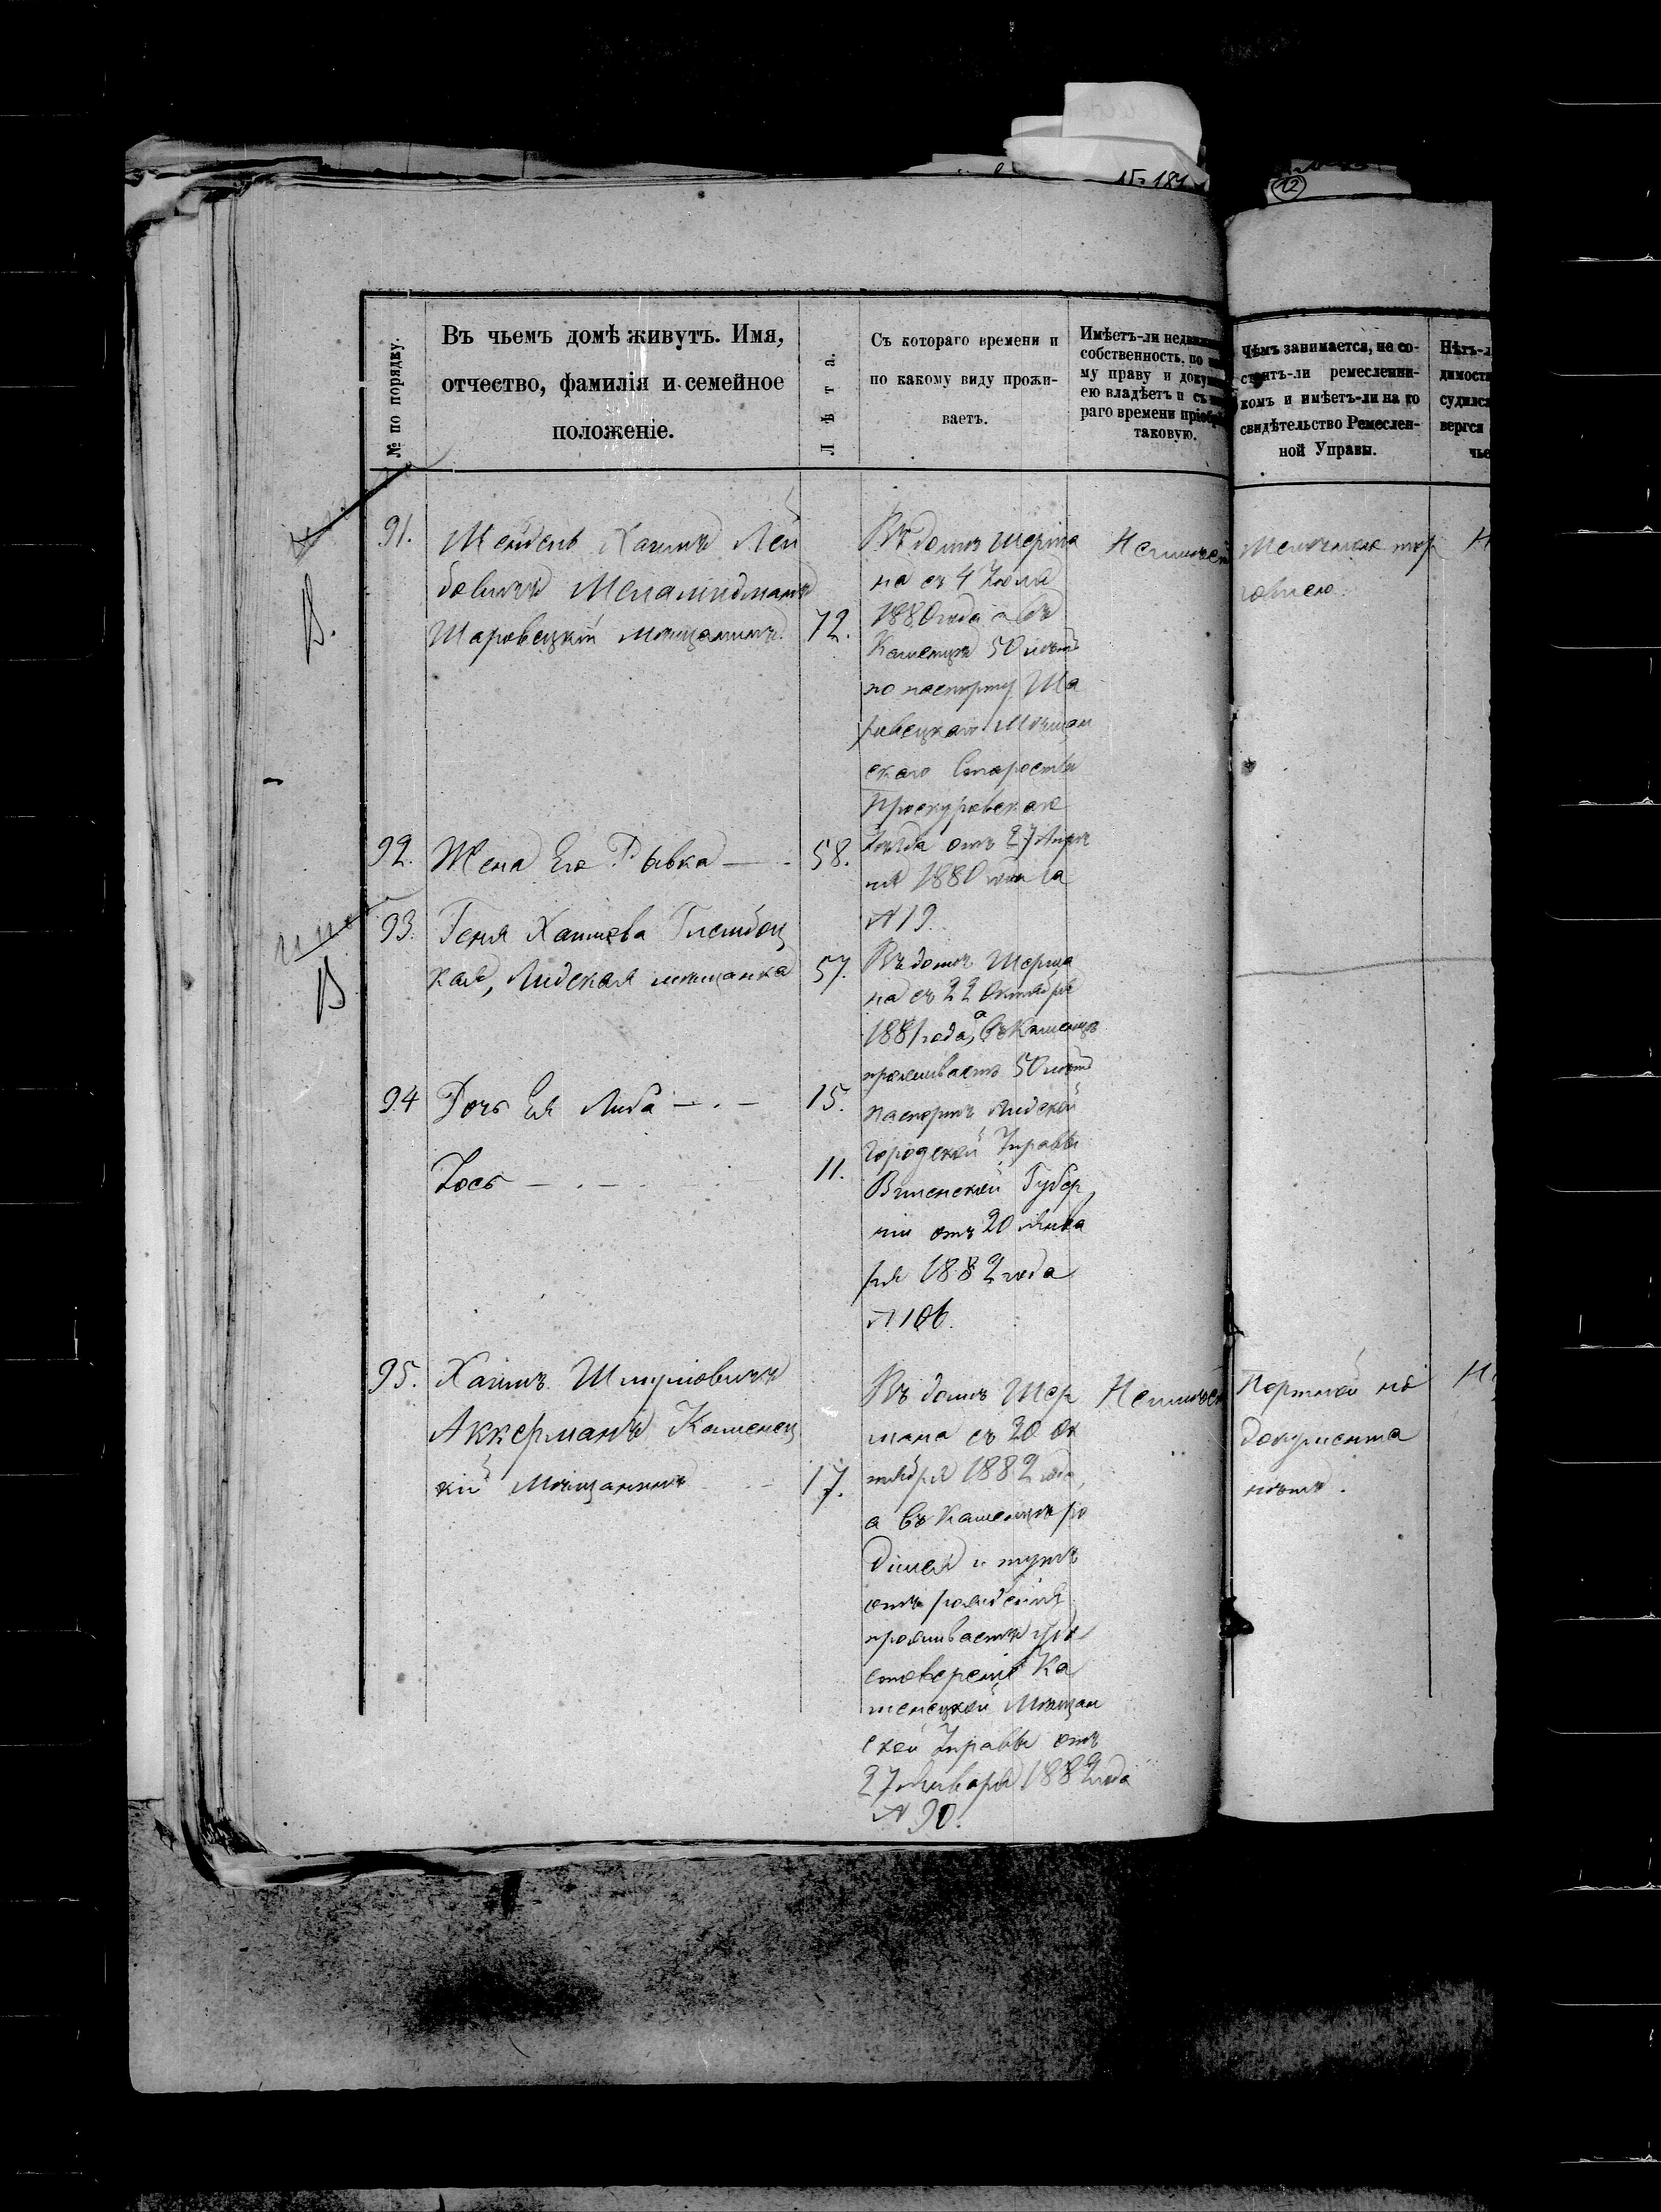 № 184
12
№ по порядку.
Въ чьемъ домѣ живутъ. Имя,
отчество, фамилія и семейное
положеніе.
Лѣта.
Съ котораго времени и
по какому виду прожи-
ваетъ.
Имѣетъ-ли
собственность, по
му праву и
ею владѣетъ и съ
раго времени
таковую.
Чѣмъ занимается, не со-
стоитъ-ли ремесленни-
комъ и имѣетъ-ли на то
свидѣтельство Ремеслен-
ной Управы.
Нѣтъ-л
димости
судился
вергся
чье
91.
Мендель Хаимъ Лей
бовичъ
Шаровецкій мѣщанинъ
72.
Въ домѣ Шерма
на съ 4 Іюля
1880 года а въ
Каменцѣ 50 лѣтъ
по паспорту Ша
ровецкаго Мѣщан
скаго Старосты
Проскуровскаго
Уѣзда отъ 27 Апрѣ
ля 1880 года за
№ 19.
Неимѣет
Мелочною тор
говлею.
В.
92.
Жена Его Рывка
58.
93.
Геня Хаимова
кая, Лидская мѣщанка
57.
В
Въ домѣ Шерма
на съ 22 Октября
1881 года, а въ Каменцѣ
проживаетъ 50 лѣтъ
паспортъ Лидской
Городской Управы
Виленской Губер
ніи отъ 20 Янва
ря 1882 года
№ 106.
94
Дочь Ея Либа
15.
Іось
11.
95.
Хаимъ Шмулёвичъ
Аккерманъ Каменец
кій Мѣщанинъ
17.
Въ домѣ Шер
мана съ 20 Ок
тября 1882 года,
а въ Каменцѣ ро
дился и тутъ
отъ рожденія
проживаетъ удо
стовереніе Ка
менецкой Мѣщан
ской Управы отъ
27 Января 1882 года
№ 90.
Неимѣет
Портной но
документа
нѣтъ.